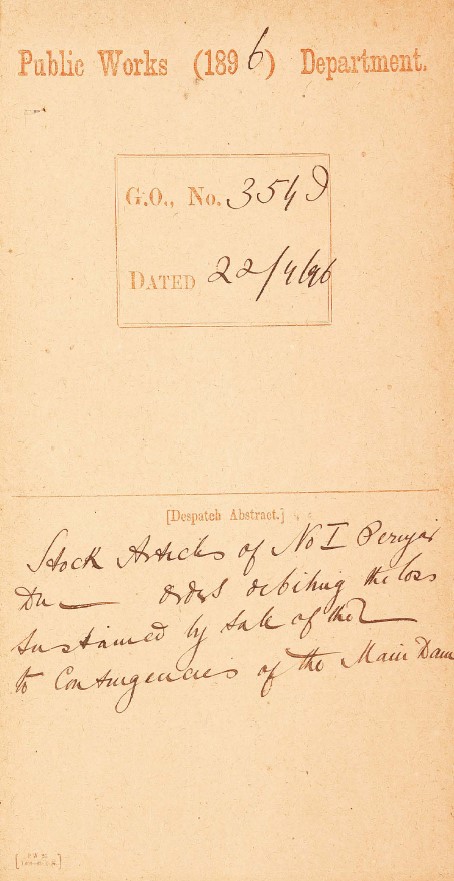 Public Works (1896) Department.
G.O., No. 354 I
DATED 22/4/96
[Despatch Abstract.]
Stock Articles of No I Periyar
Dn — orders debiting the loss
sustained by sale of the —
to Contingencies of the Main Dam